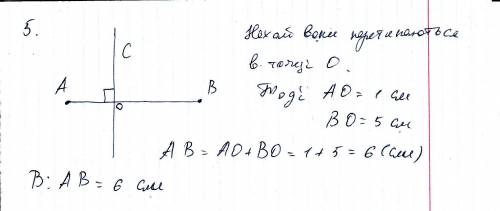 5.
C
A
B
O
Нехай вони перетинаються
в точці O.
Тоді AO = 1 см
BO = 5 см
AB = AO + BO = 1 + 5 = 6 (см)
В: AB = 6 см